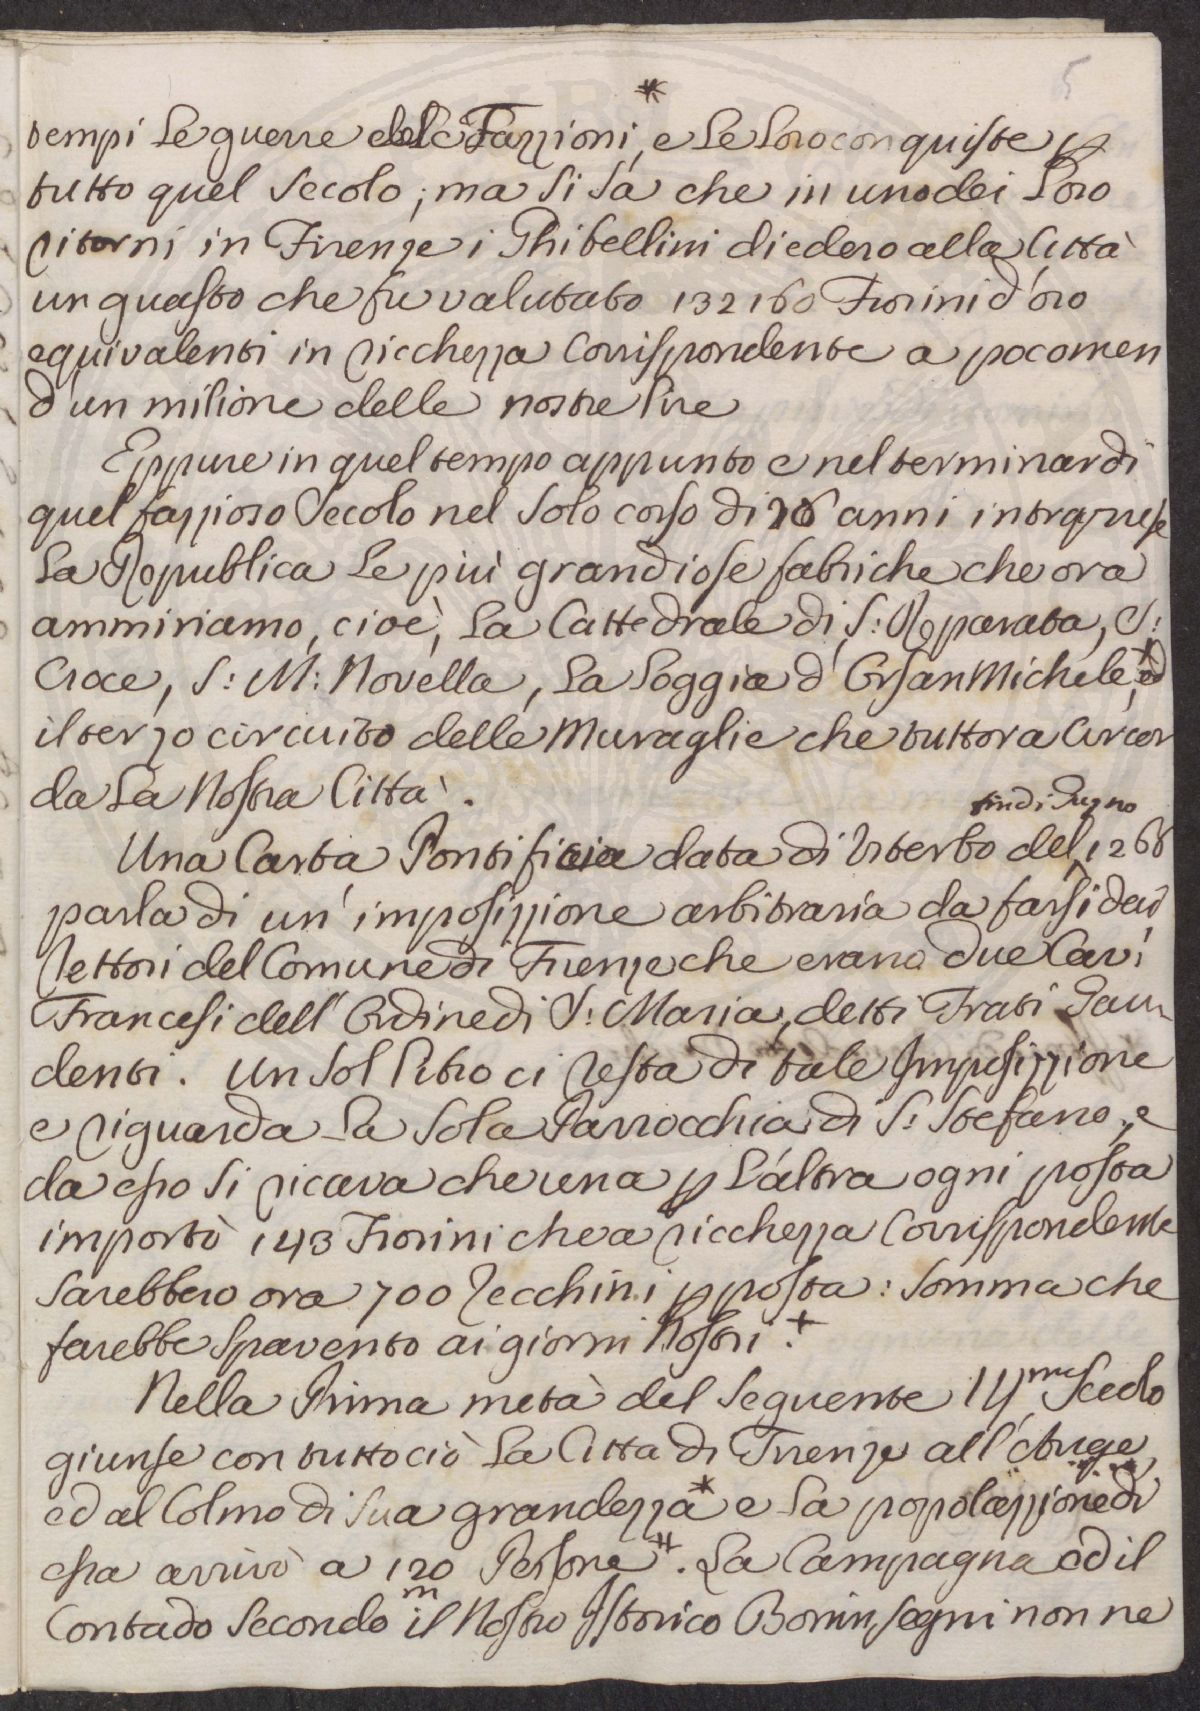 5
*
tempi le guerre delle Fazzioni, e le loro conquiste p
tutto quel secolo; ma si sà che in uno dei loro
ritorni in Firenze i Ghibellini diedero alla Città
un guasto che fu valutato 132160 Fiorini d'oro
equivalenti in ricchezza corrispondente a poco men
d'un milione delle nostre lire
Eppure in quel tempo appunto e nel terminar di
quel fazzioso secolo nel solo corso di 26 anni intraprese
la Republica le più grandiose fabriche che ora
ammiriamo, cioè, la Cattedrale di S: Reparata, S:
Croce, S: M: Novella, la loggia d'Orsan Michele,* ed
il terzo circuito delle Muraglie che tuttora circon
da la Nostra Città.
fin di Giugno
Una Carta Pontificia data di Viterbo del 1266
parla di un'imposizzione arbitraria da farsi dai
Rettori del Comune di Firenze che erano due Cavi
Francesi dell'Ordine di S: Maria, detti Frati Gau-
denti. Un sol libro ci resta di tale Imposizzione
e riguarda la sola Parrocchia di S: Stefano, e
da esso si ricava che una p l'altra ogni posta
importò 143 Fiorini che a ricchezza corrispondente
sarebbero ora 700 Zecchini p posta: somma che
farebbe spavento ai giorni Nostri.+
Nella Prima metà del seguente 14mo Secolo
giunse con tuttociò la Citta di Firenze all'Auge,
ed al Colmo di sua grandezza* e la popolazzione di
essa arrivò a 120 Persone#. La Campagna ed il
m
Contado secondo il Nostro Istorico Boninsegni non ne